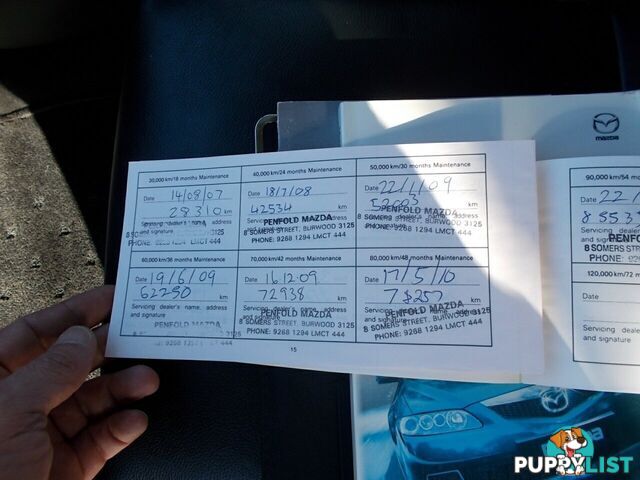 mazda
30,000 km/18 months Maintenance
Date 14/08/07
28310 km
Servicing dealer's name, address
and signature
40,000 km/24 months Maintenance
Date 18/7/08
42534 km
PENFOLD MAZDA
8 SOMERS STREET, BURWOOD 3125
PHONE: 9268 1294 LMCT 444
50,000 km/30 months Maintenance
Date 22/1/09
km
PENFOLD MAZDA
8 SOMERS STREET, BURWOOD 3125
PHONE: 9268 1294 LMCT 444
60,000 km/36 months Maintenance
Date 19/6/09
62290 km
Servicing dealer's name, address
and signature
PENFOLD MAZDA
70,000 km/42 months Maintenance
Date 16.12.09
72938 km
Servicing dealer's name, address
and signature
PENFOLD MAZDA
8 SOMERS STREET, BURWOOD 3125
PHONE: 9268 1294 LMCT 444
80,000 km/48 months Maintenance
Date 17/5/10
km
Servicing dealer's name, address
and signature
PENFOLD MAZDA
8 SOMERS STREET, BURWOOD 3125
PHONE: 9268 1294 LMCT 444
15
90,000 km/54
Date 22/
Servicing
and signature
PENFO
8 SOMERS STREE
PHONE:
120,000 km/72
Date
Servicing dealer
and signature
PUPPYLIST